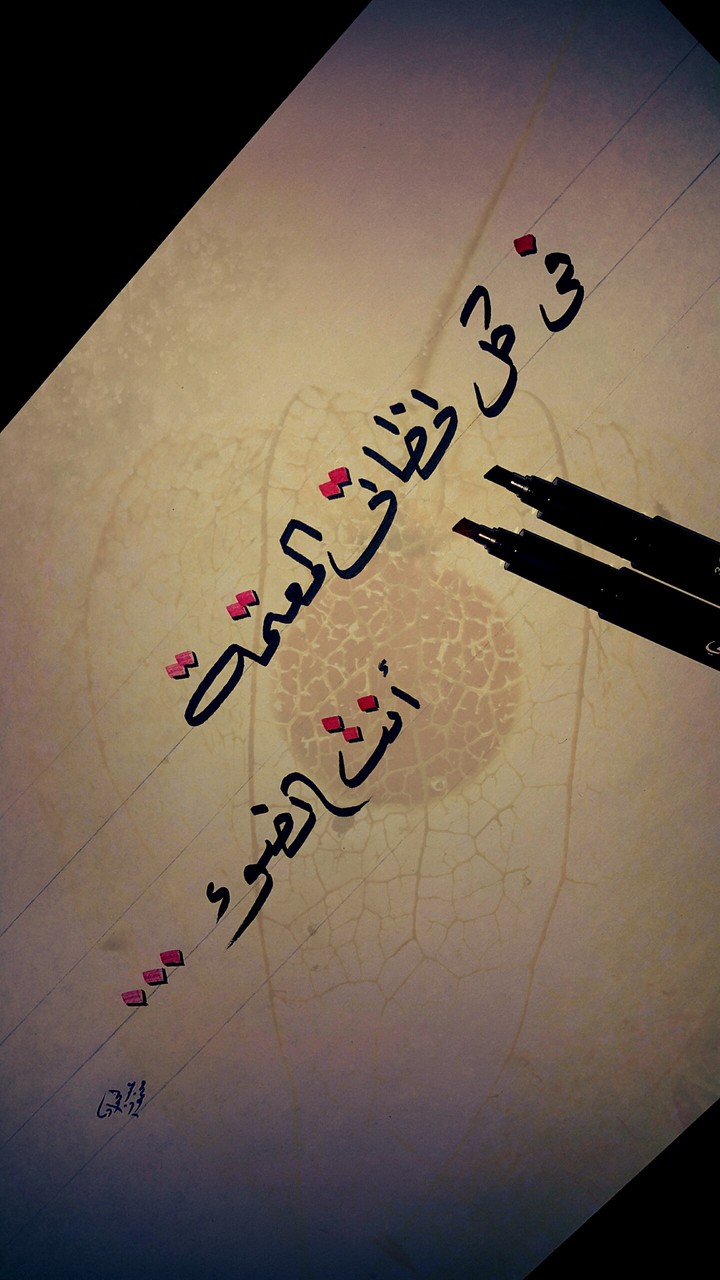 في كل لحظاتي المعتمة
أنت الضوء ...